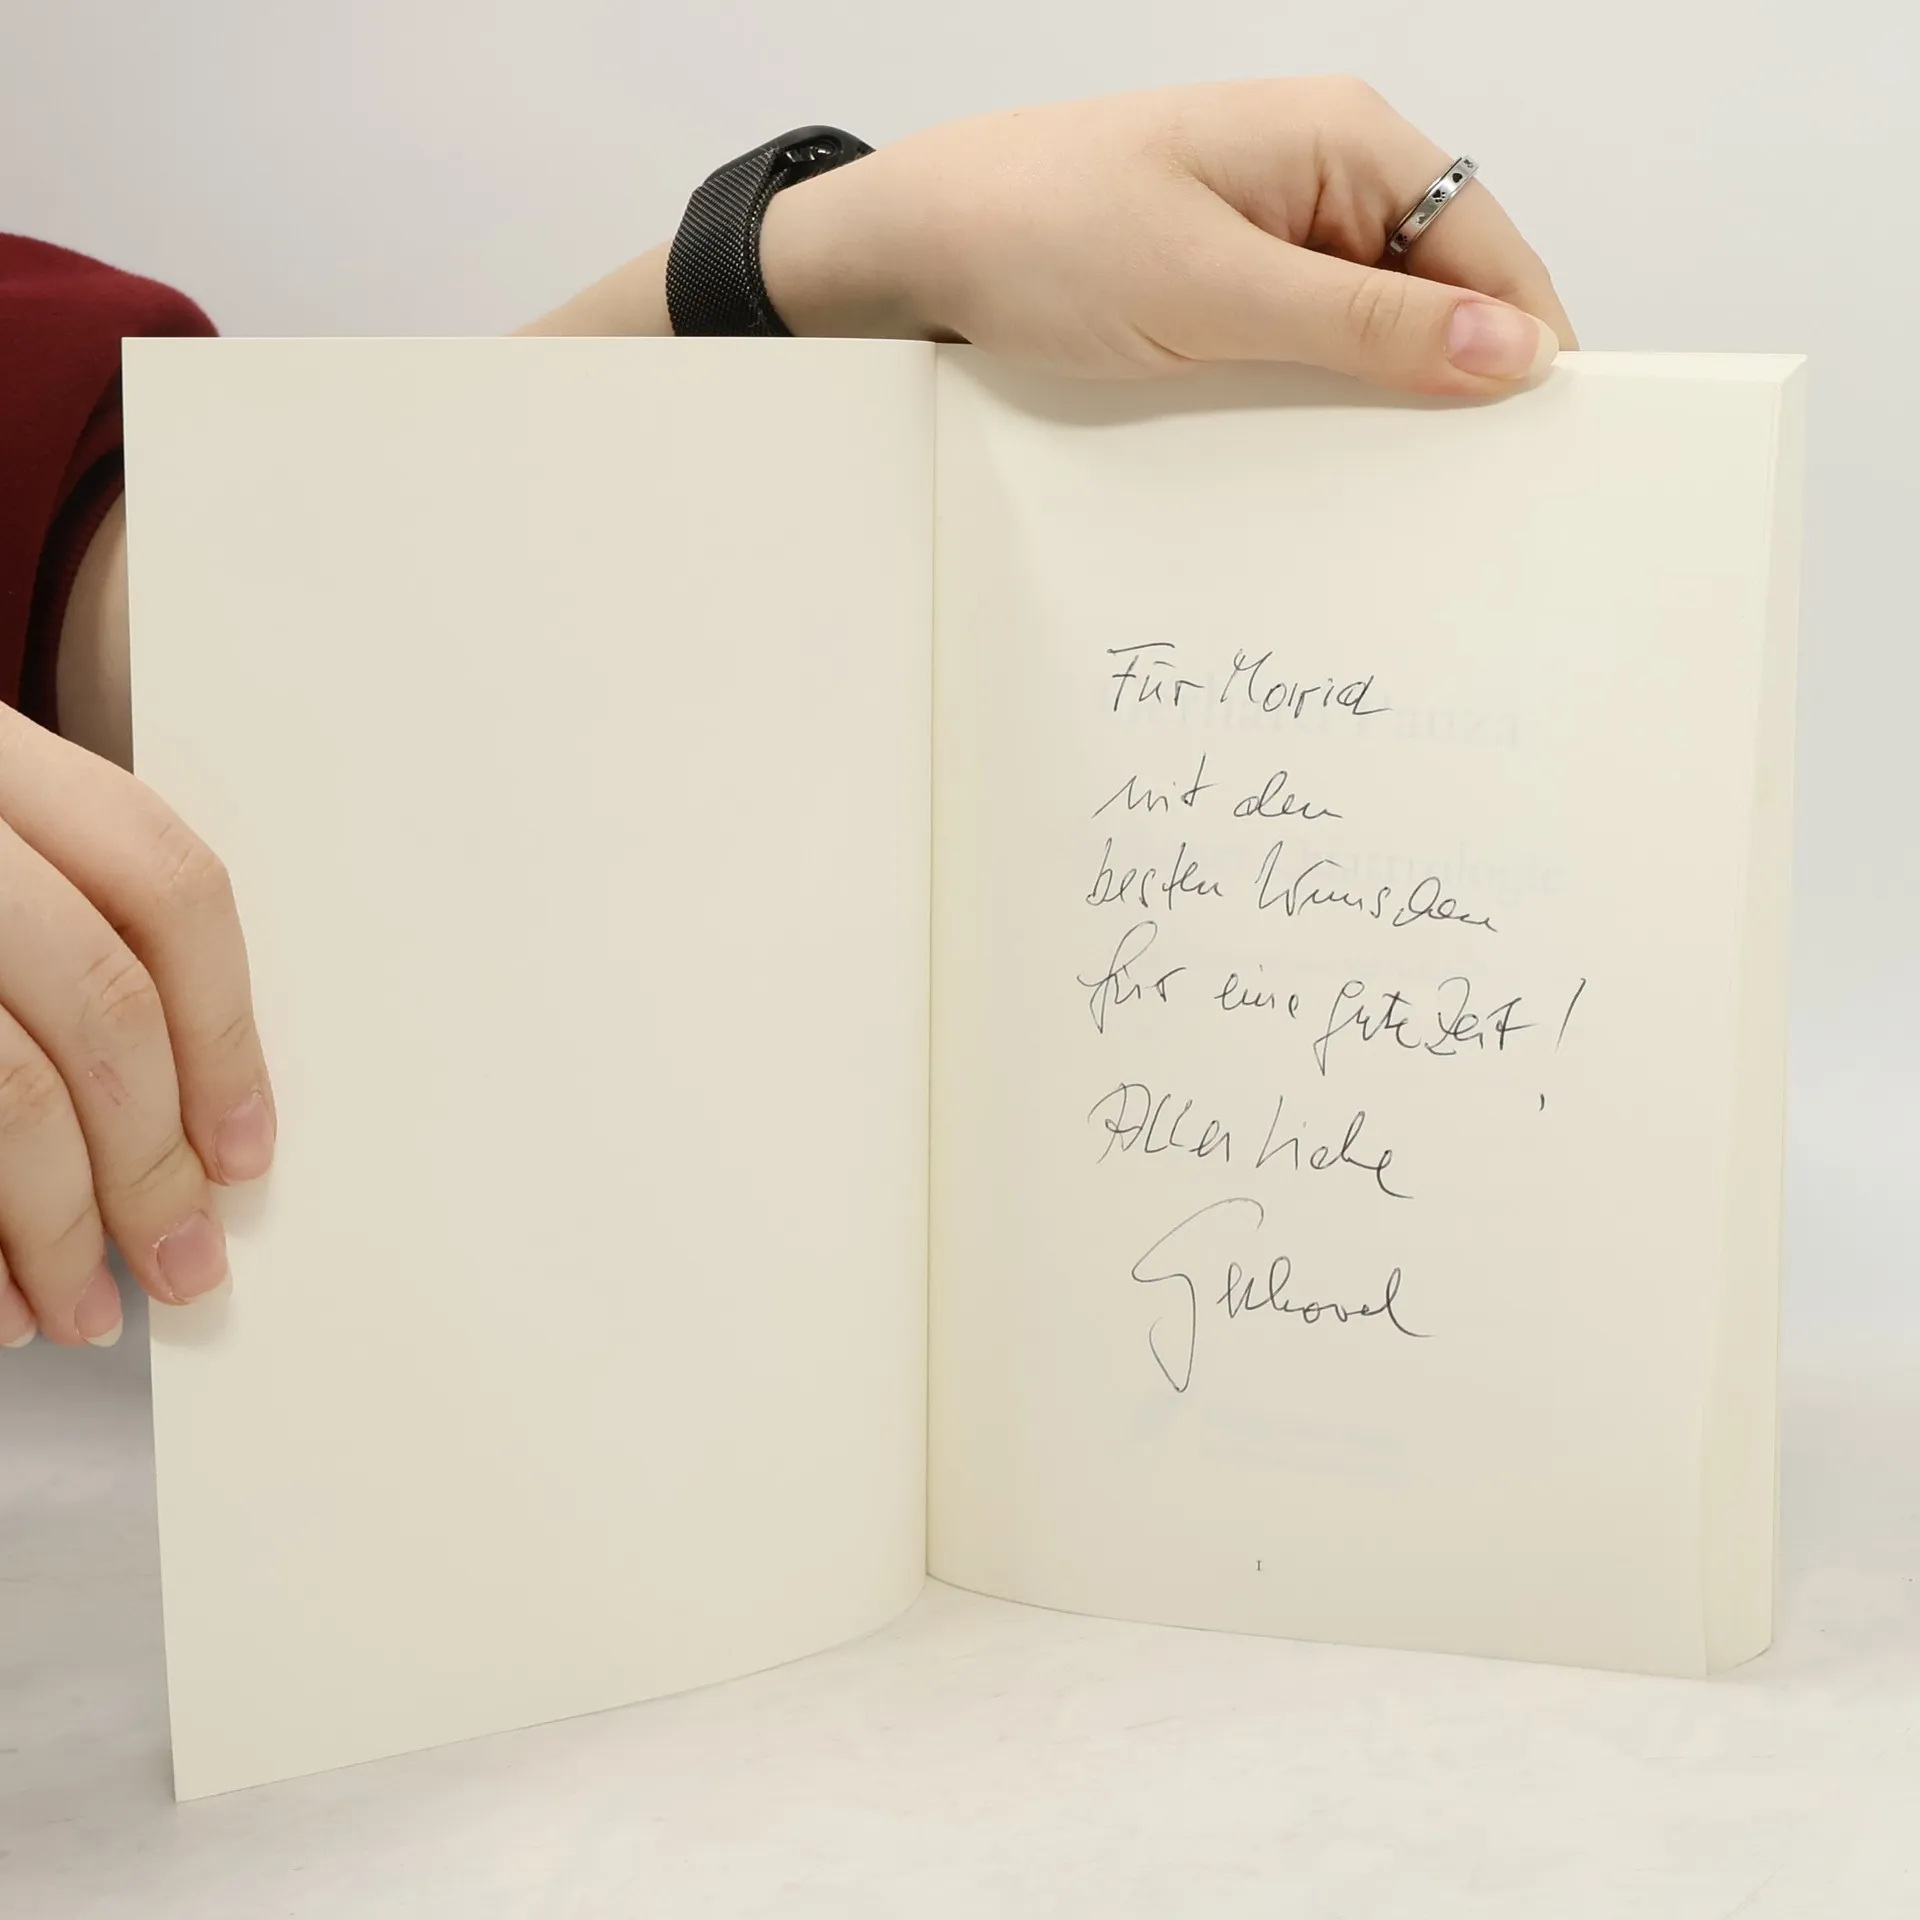 Für Maria
mit den
besten Wünschen
für eine gute Zeit!
Alles Liebe
Gerhard
1